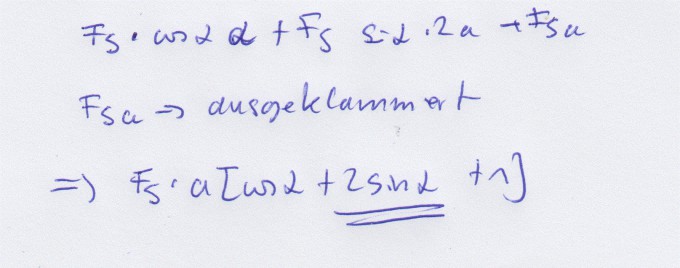 F_S · cos α a + F_S sin α · 2a + F_S a
F_S a → ausgeklammert
=> F_S · a [cos α + 2 sin α + 1]